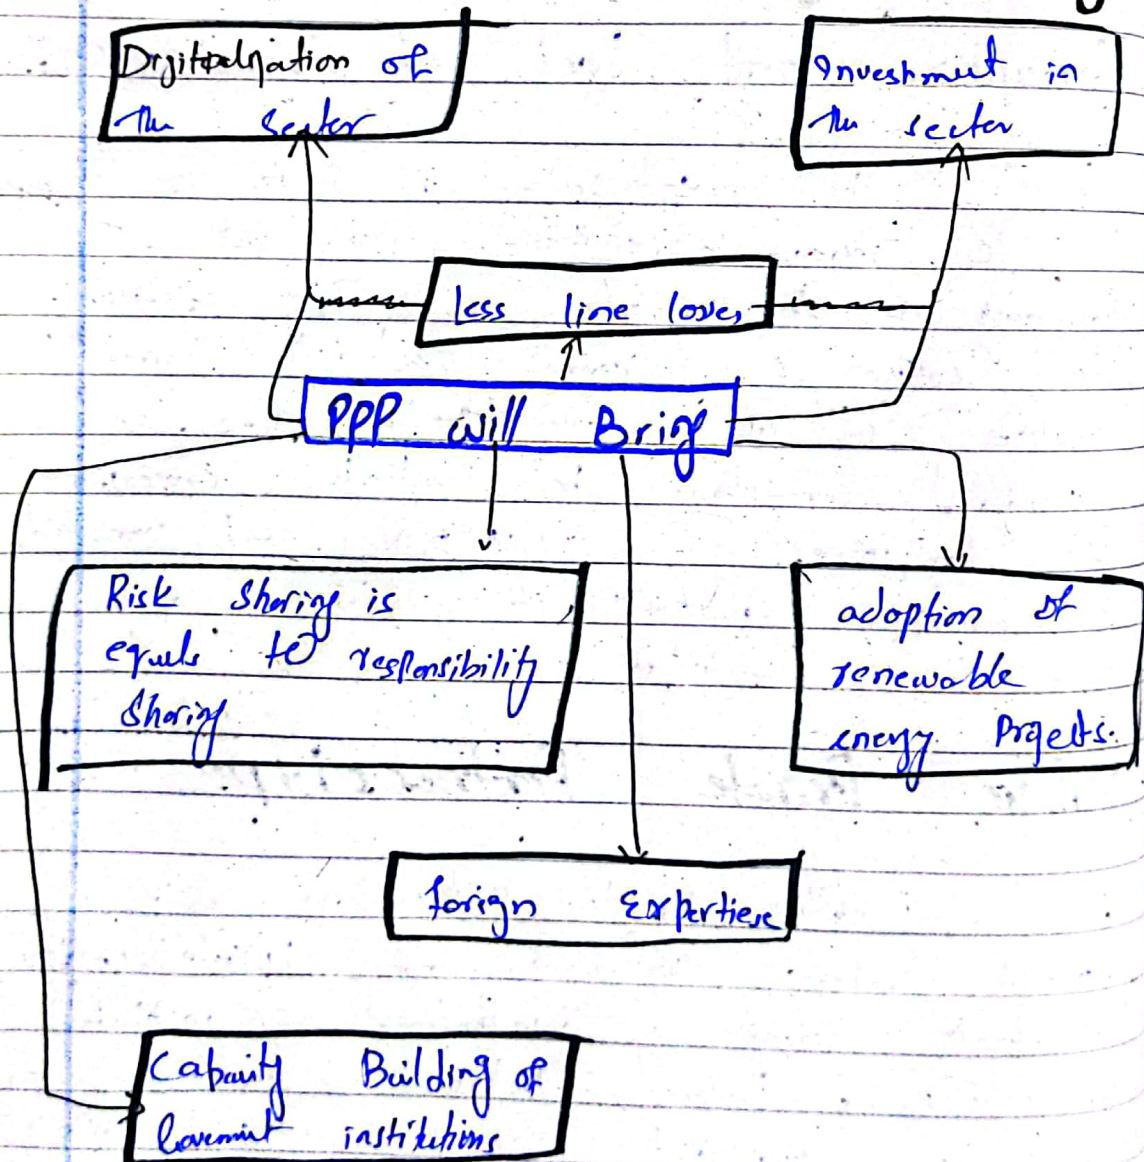 Drgitalization of
the Sector
Investment in
the sector
less line loses
PPP will Bring
Risk Sharing is
equals to responsibility
Sharing
adoption of
renewable
energy Projects.
forign Expertiese
Capaity Building of
Goverment institutions